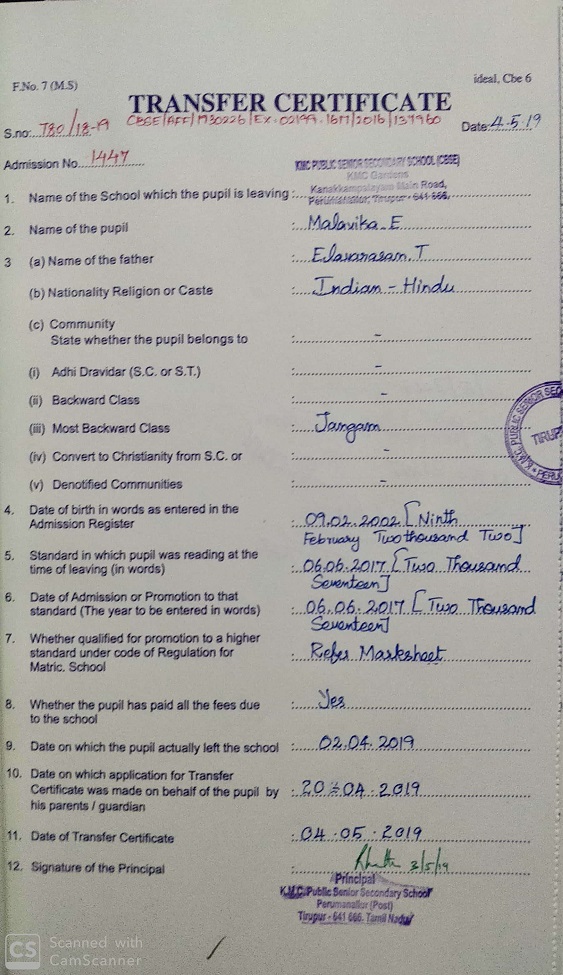 F.No. 7 (M.S)
ideal, Cbe 6
TRANSFER CERTIFICATE
S.no: T80/18-19
CBSE/AFF/1930226/EX-02199-1617/2016/137960
Date: 4.5.19
Admission No. 1447
KMC PUBLIC SENIOR SECONDARY SCHOOL (CBSE)
KMC Gardens
1. Name of the School which the pupil is leaving : Kanakkampalayam Main Road,
Perumanallur, Tirupur - 641 666.
2. Name of the pupil : Malavika.E
3 (a) Name of the father : Elavarasan.T
(b) Nationality Religion or Caste : Indian - Hindu
(c) Community
State whether the pupil belongs to : -
(i) Adhi Dravidar (S.C. or S.T.) : -
(ii) Backward Class : -
(iii) Most Backward Class : Jangam
(iv) Convert to Christianity from S.C. or : -
(v) Denotified Communities : -
4. Date of birth in words as entered in the
Admission Register : 09.02.2002 [Ninth
February Twothousand Two]
5. Standard in which pupil was reading at the
time of leaving (in words) : 06.06.2017 [Two Thousand
Seventeen]
6. Date of Admission or Promotion to that
standard (The year to be entered in words) : 06.06.2017 [Two Thousand
Seventeen]
7. Whether qualified for promotion to a higher
standard under code of Regulation for : Refer Marksheet
Matric. School
8. Whether the pupil has paid all the fees due : Yes
to the school
9. Date on which the pupil actually left the school : 02.04.2019
10. Date on which application for Transfer
Certificate was made on behalf of the pupil by : 20.04.2019
his parents / guardian
11. Date of Transfer Certificate : 04.05.2019
12. Signature of the Principal : 3/5/19
Principal
K.M.C. Public Senior Secondary School
Perumanallur (Post)
Tirupur - 641 666. Tamil Nadu
CS Scanned with
CamScanner